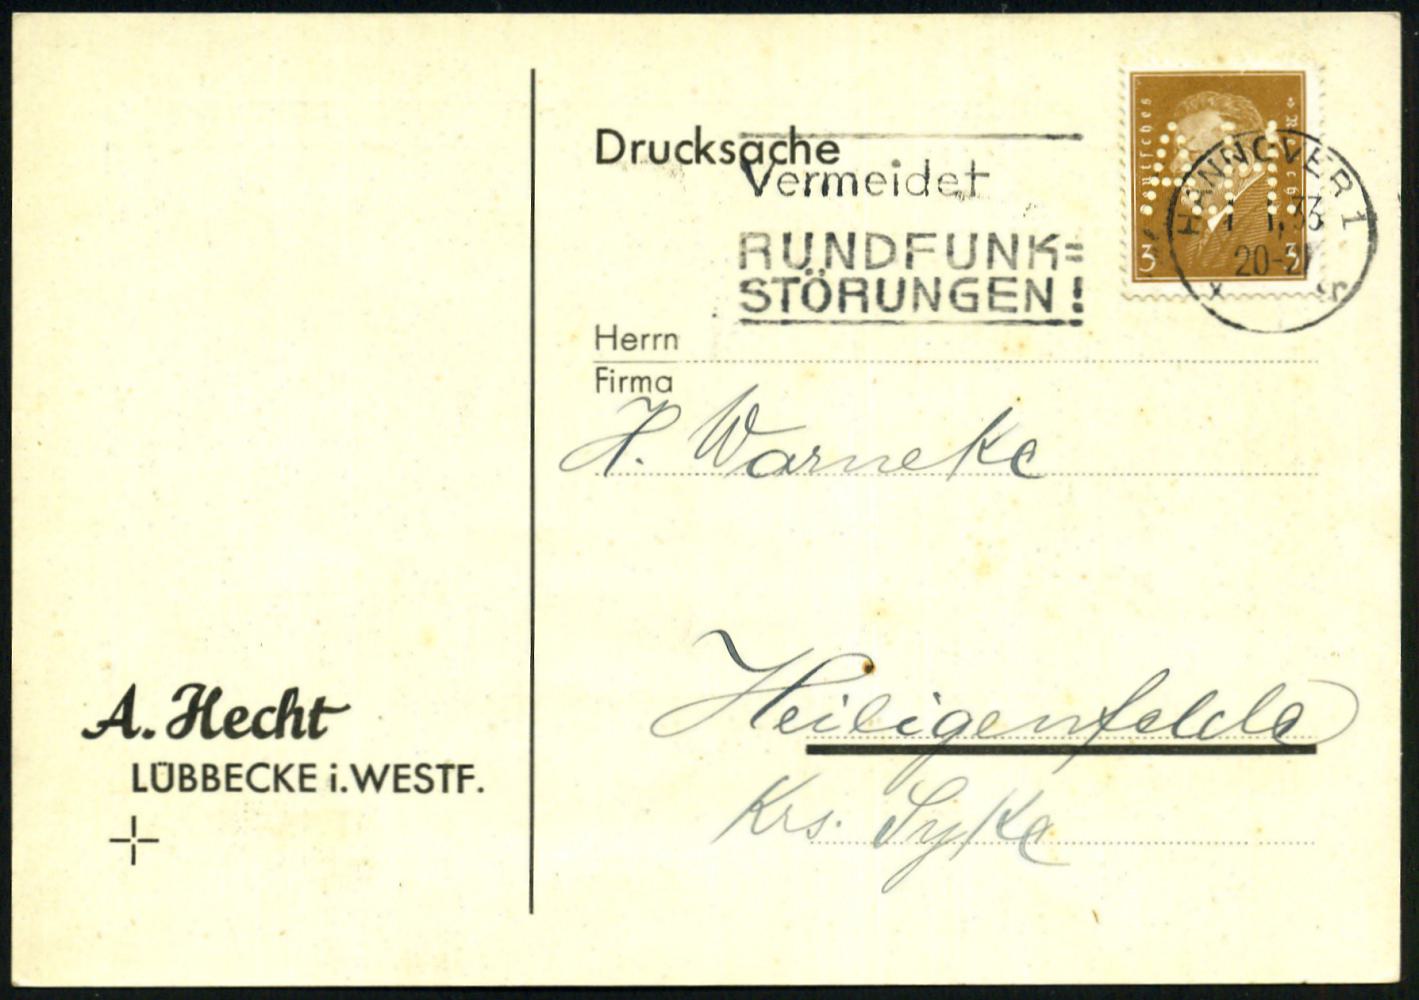 Drucksache
Vermeidet
RUNDFUNK=
STÖRUNGEN!
Deutsches Reich
3 3
HANNOVER 1
1.1.33
20-21
Herrn
Firma
H. Warneke
Heiligenfelde
Krs. Syke
A. Hecht
LÜBBECKE i. WESTF.